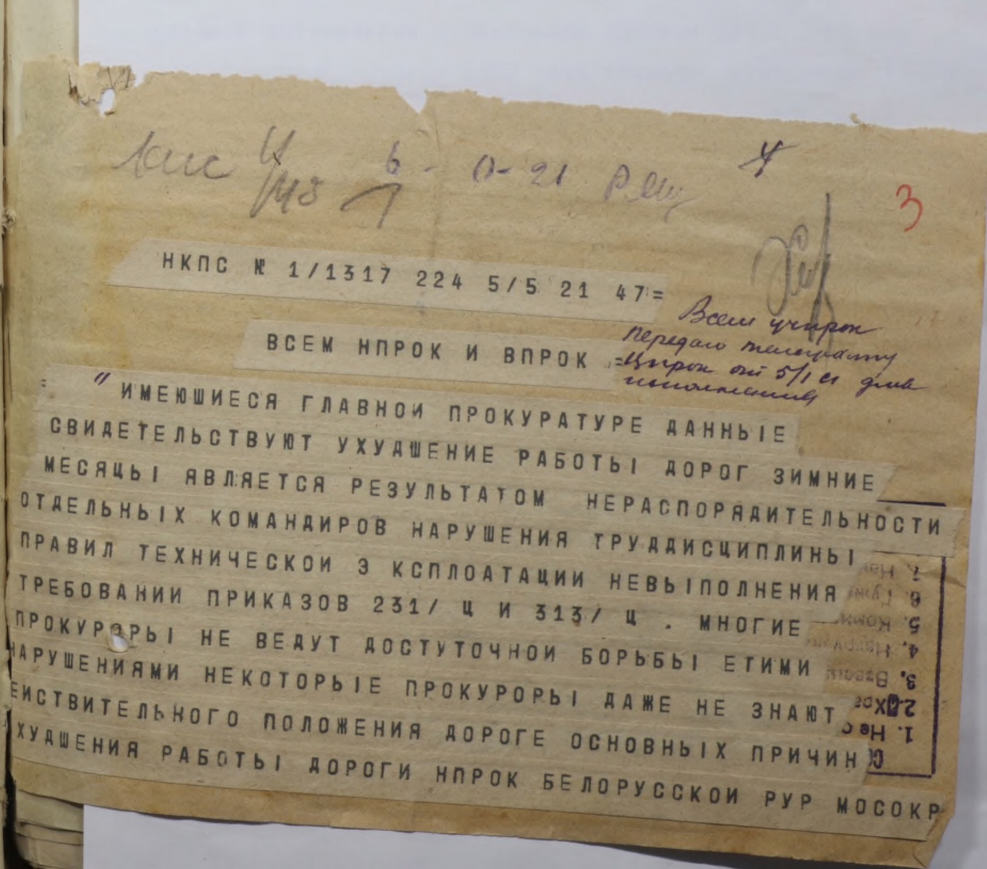 6 - 0-21
3
НКПС № 1/1317 224 5/5 21 47=
Всем учпрок
передаю телеграмму
Цпрок от 5/I с/г для
исполнения
ВСЕМ НПРОК И ВПРОК =
= " ИМЕЮШИЕСЯ ГЛАВНОИ ПРОКУРАТУРЕ ДАННЫЕ
СВИДЕТЕЛЬСТВУЮТ УХУДШЕНИЕ РАБОТЫ ДОРОГ ЗИМНИЕ
МЕСЯЦЫ ЯВЛЯЕТСЯ РЕЗУЛЬТАТОМ НЕРАСПОРЯДИТЕЛЬНОСТИ
ОТДЕЛЬНЫХ КОМАНДИРОВ НАРУШЕНИЯ ТРУДДИСЦИПЛИНЫ
ПРАВИЛ ТЕХНИЧЕСКОИ Э КСПЛОАТАЦИИ НЕВЫПОЛНЕНИЯ
ТРЕБОВАНИИ ПРИКАЗОВ 231/ Ц И 313/ Ц . МНОГИЕ
ПРОКУРОРЫ НЕ ВЕДУТ ДОСТУТОЧНОИ БОРЬБЫ ЕТИМИ
НАРУШЕНИЯМИ НЕКОТОРЫЕ ПРОКУРОРЫ ДАЖЕ НЕ ЗНАЮТ
ЕИСТВИТЕЛЬНОГО ПОЛОЖЕНИЯ ДОРОГЕ ОСНОВНЫХ ПРИЧИН
ХУДШЕНИЯ РАБОТЫ ДОРОГИ НПРОК БЕЛОРУССКОИ РУР МОСОКР